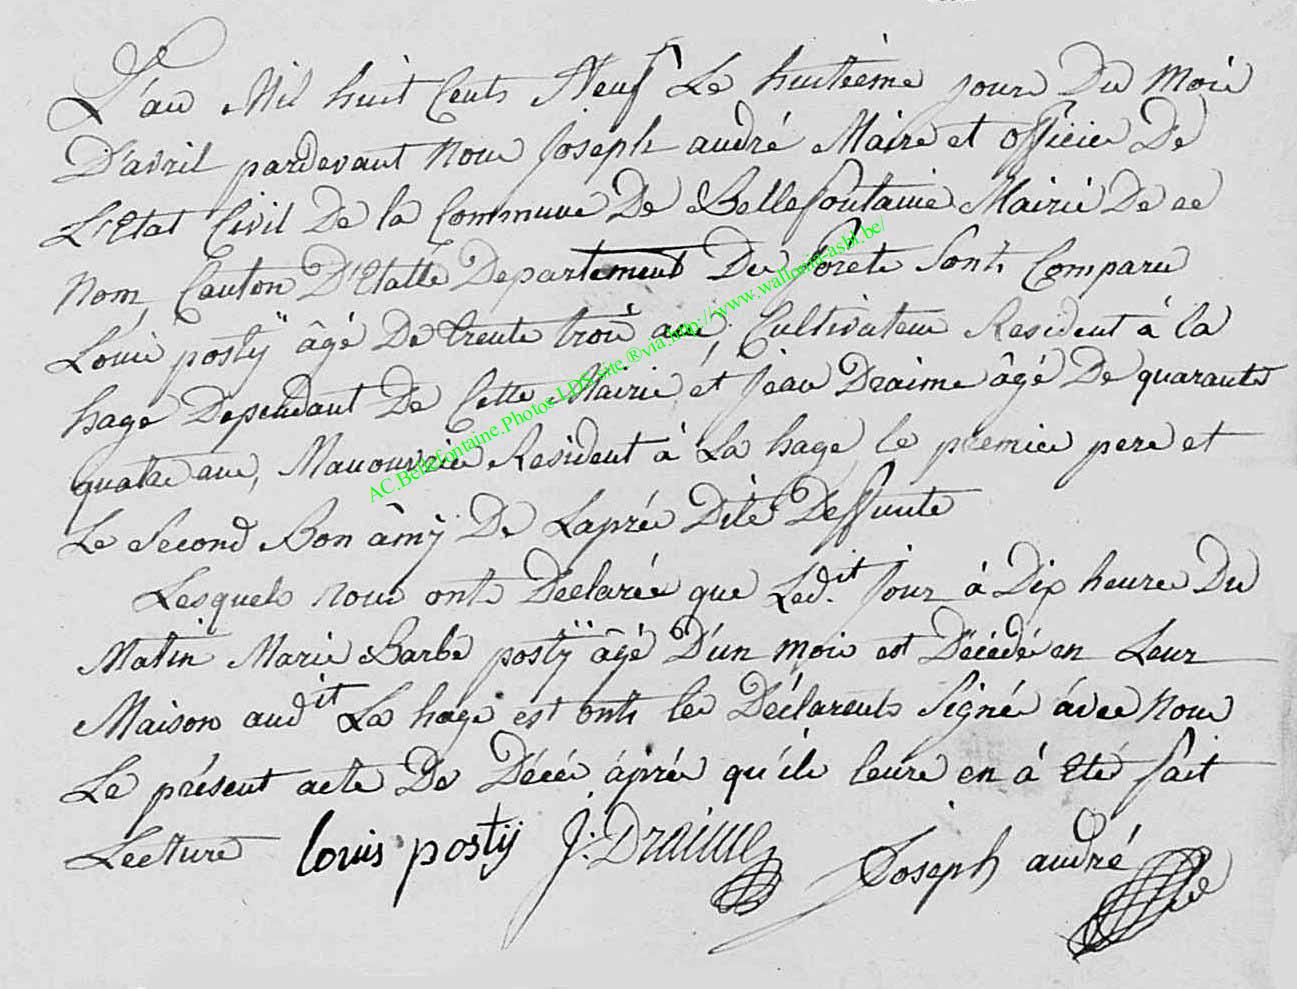 L'an Mil huit Cents Neuf Le huitième jour Du Mois
D'avril pardevant Nous Joseph andré Maire et officier De
L'Etat Civil De la Commune De Bellefontaine Mairie De ce
Nom, Canton D'Etalle Departement Des forets Sonts Comparus
Louis postÿ âgé De trente trois ans, Cultivateur Resident à la
hage Dependant De Cette Mairie et Jean Draime âgé De quarante
quatre ans, Manouvrier Resident à La hage le premier pere et
Le Second Bon âmÿ De Laprés Dite Deffunte
Lesquels Nous onts Déclarés que Led.it Jour à Dix heures Du
Matin Marie Barbe postÿ âgé D'un mois est Décédé en Leur
Maison audit La hage est onts les Déclarents Signés ávec Nous
Le présent acte De Décés áprés qu'ils leurs en à Eté fait
Lecture Louis postij J: Draime Joseph andré
AC.Bellefontaine.Photos.LDS.site.®via.http://www.wallonia-asbl.be/